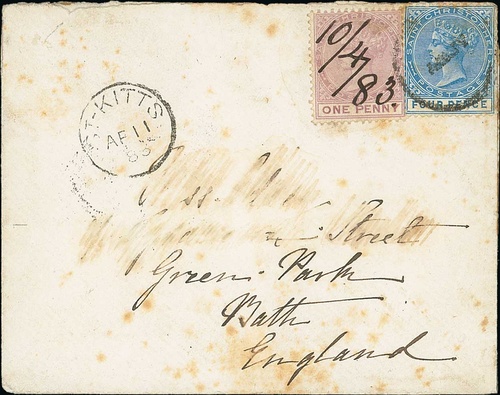 10/4/83
ONE PENNY
SAINT CHRISTOPHER
POSTAGE
FOUR PENCE
ST-KITTS
AP 11
83
Street
Green Park
Bath
England